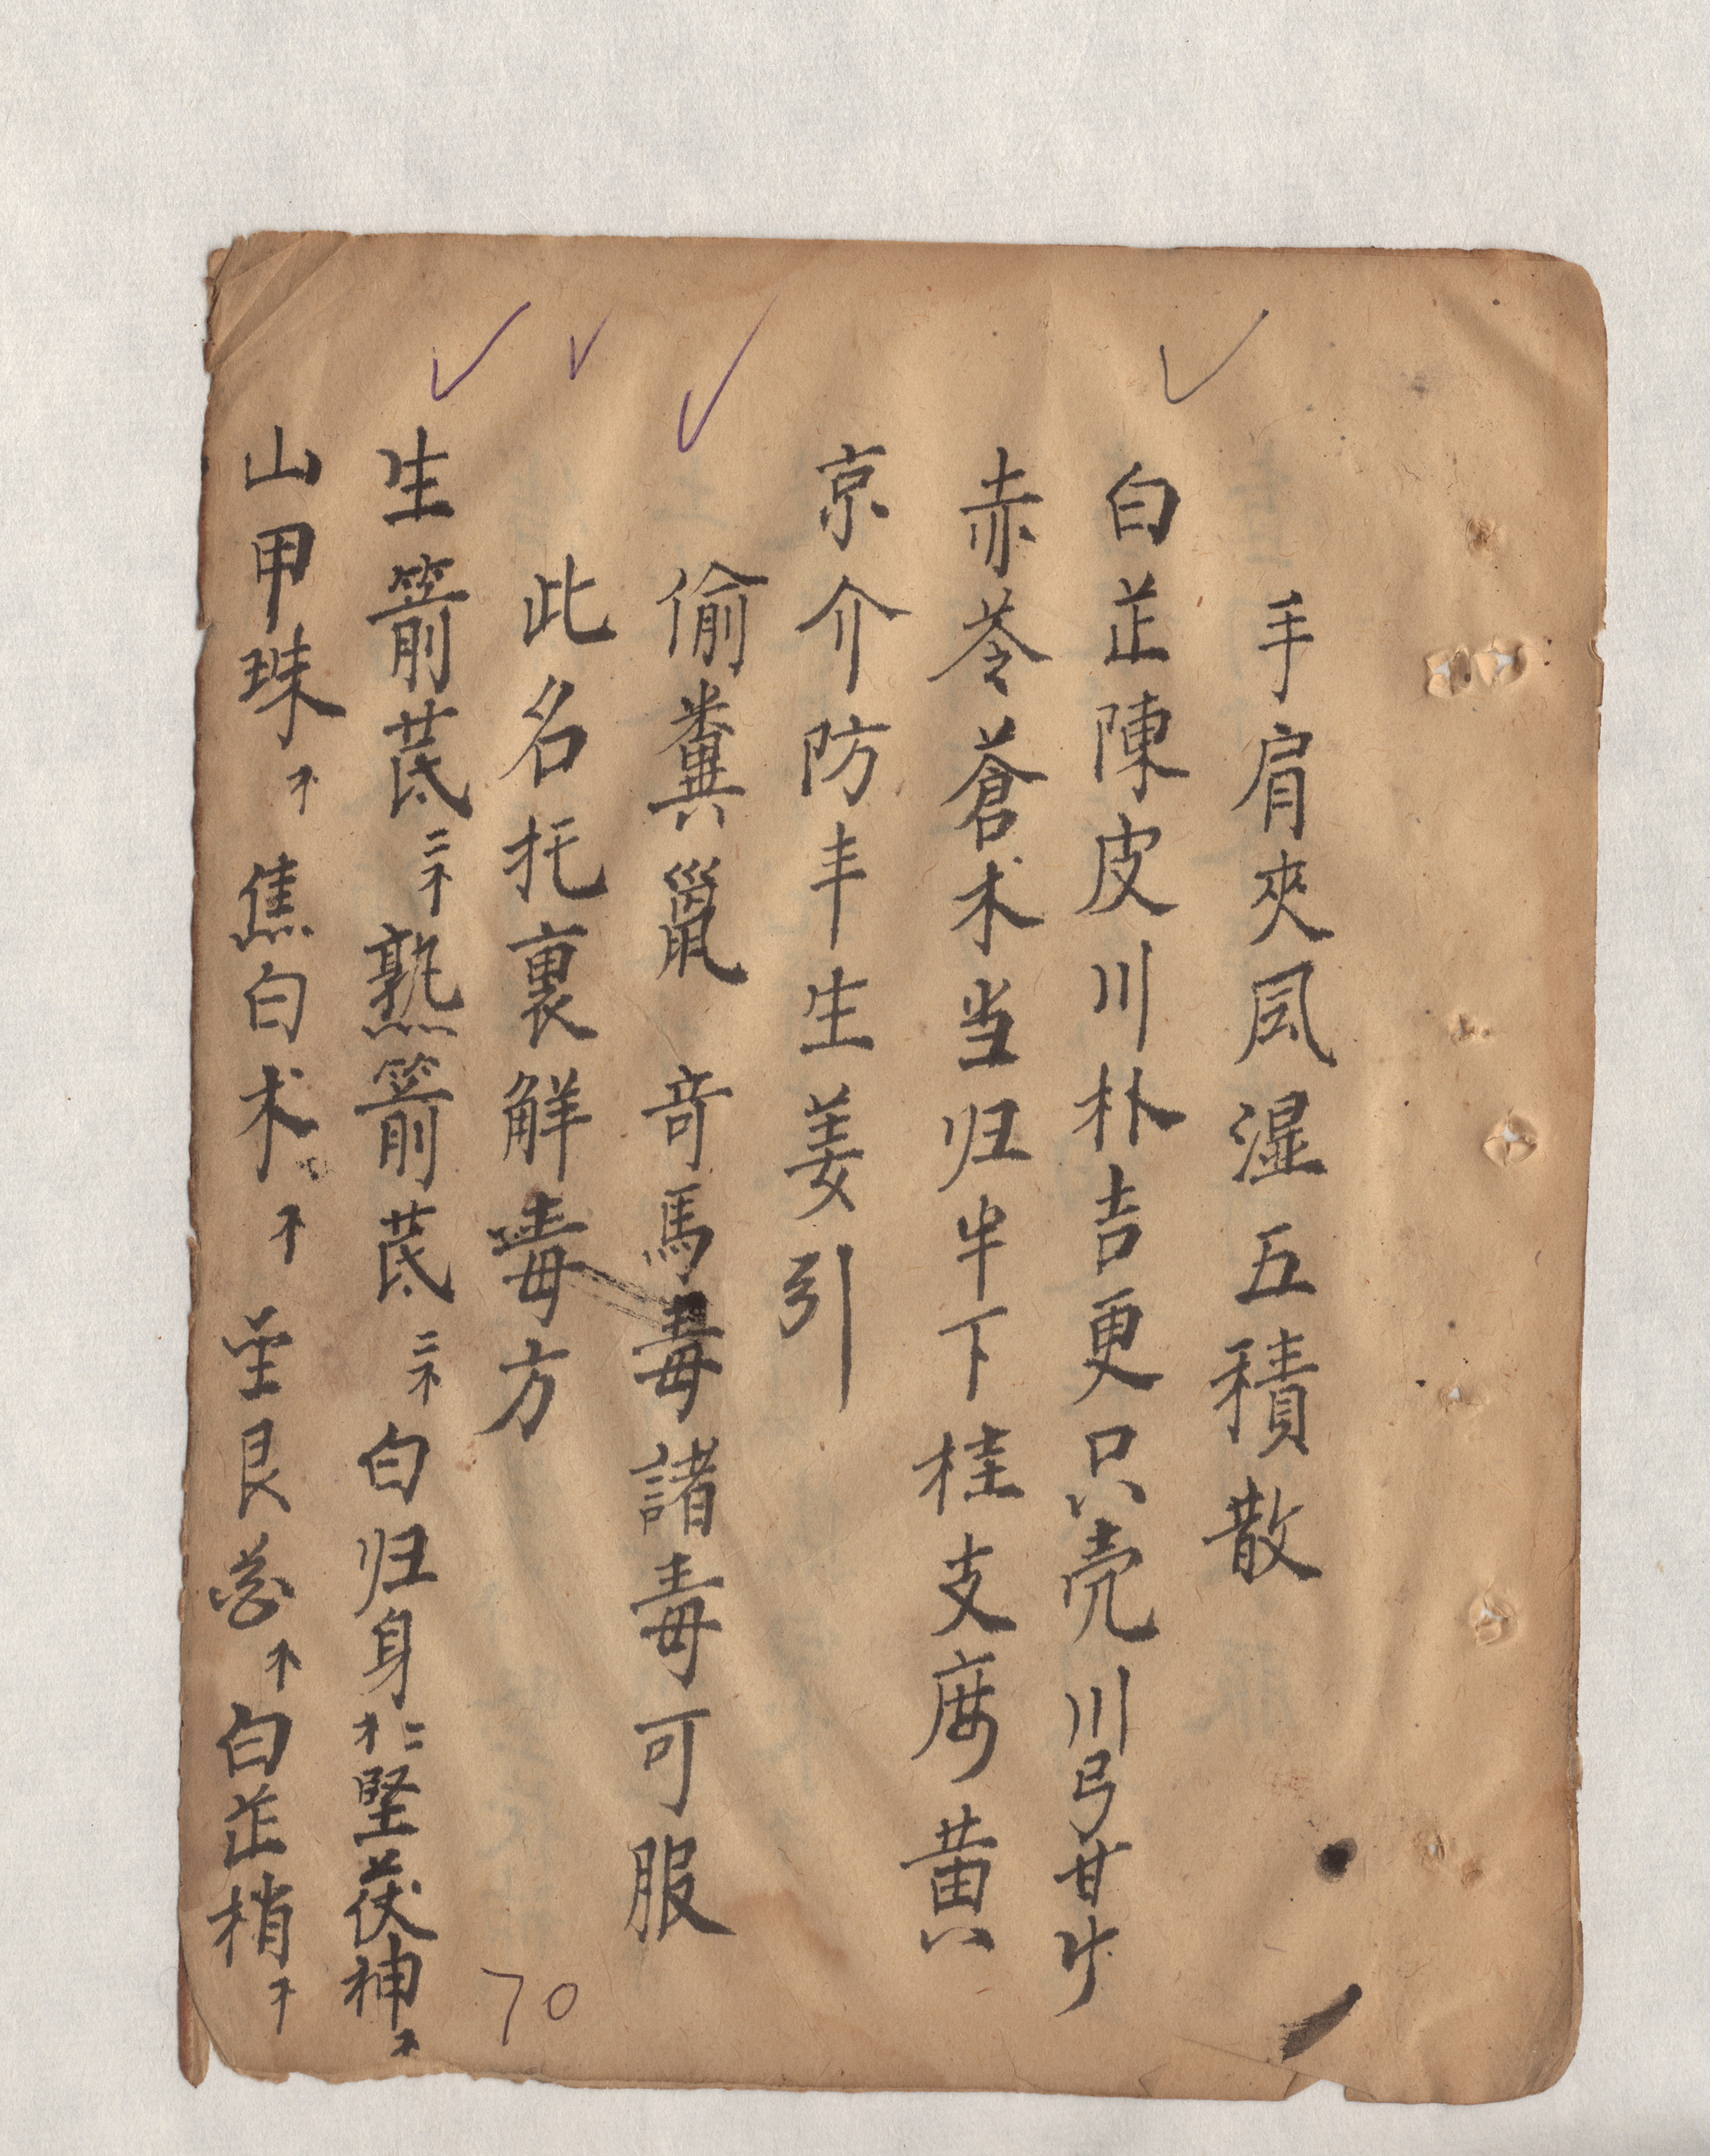 手肩夾风湿五積散
白芷陳皮川朴吉更只壳川弓甘艹
赤苓蒼木当归半下桂支麻黄
京介防丰生姜引
偷糞鼠 奇馬毒諸毒可服
此名托裏解毒方
生箭芪 熟箭芪 白归身 堅茯神
山甲珠 焦白术 白芷梢
70